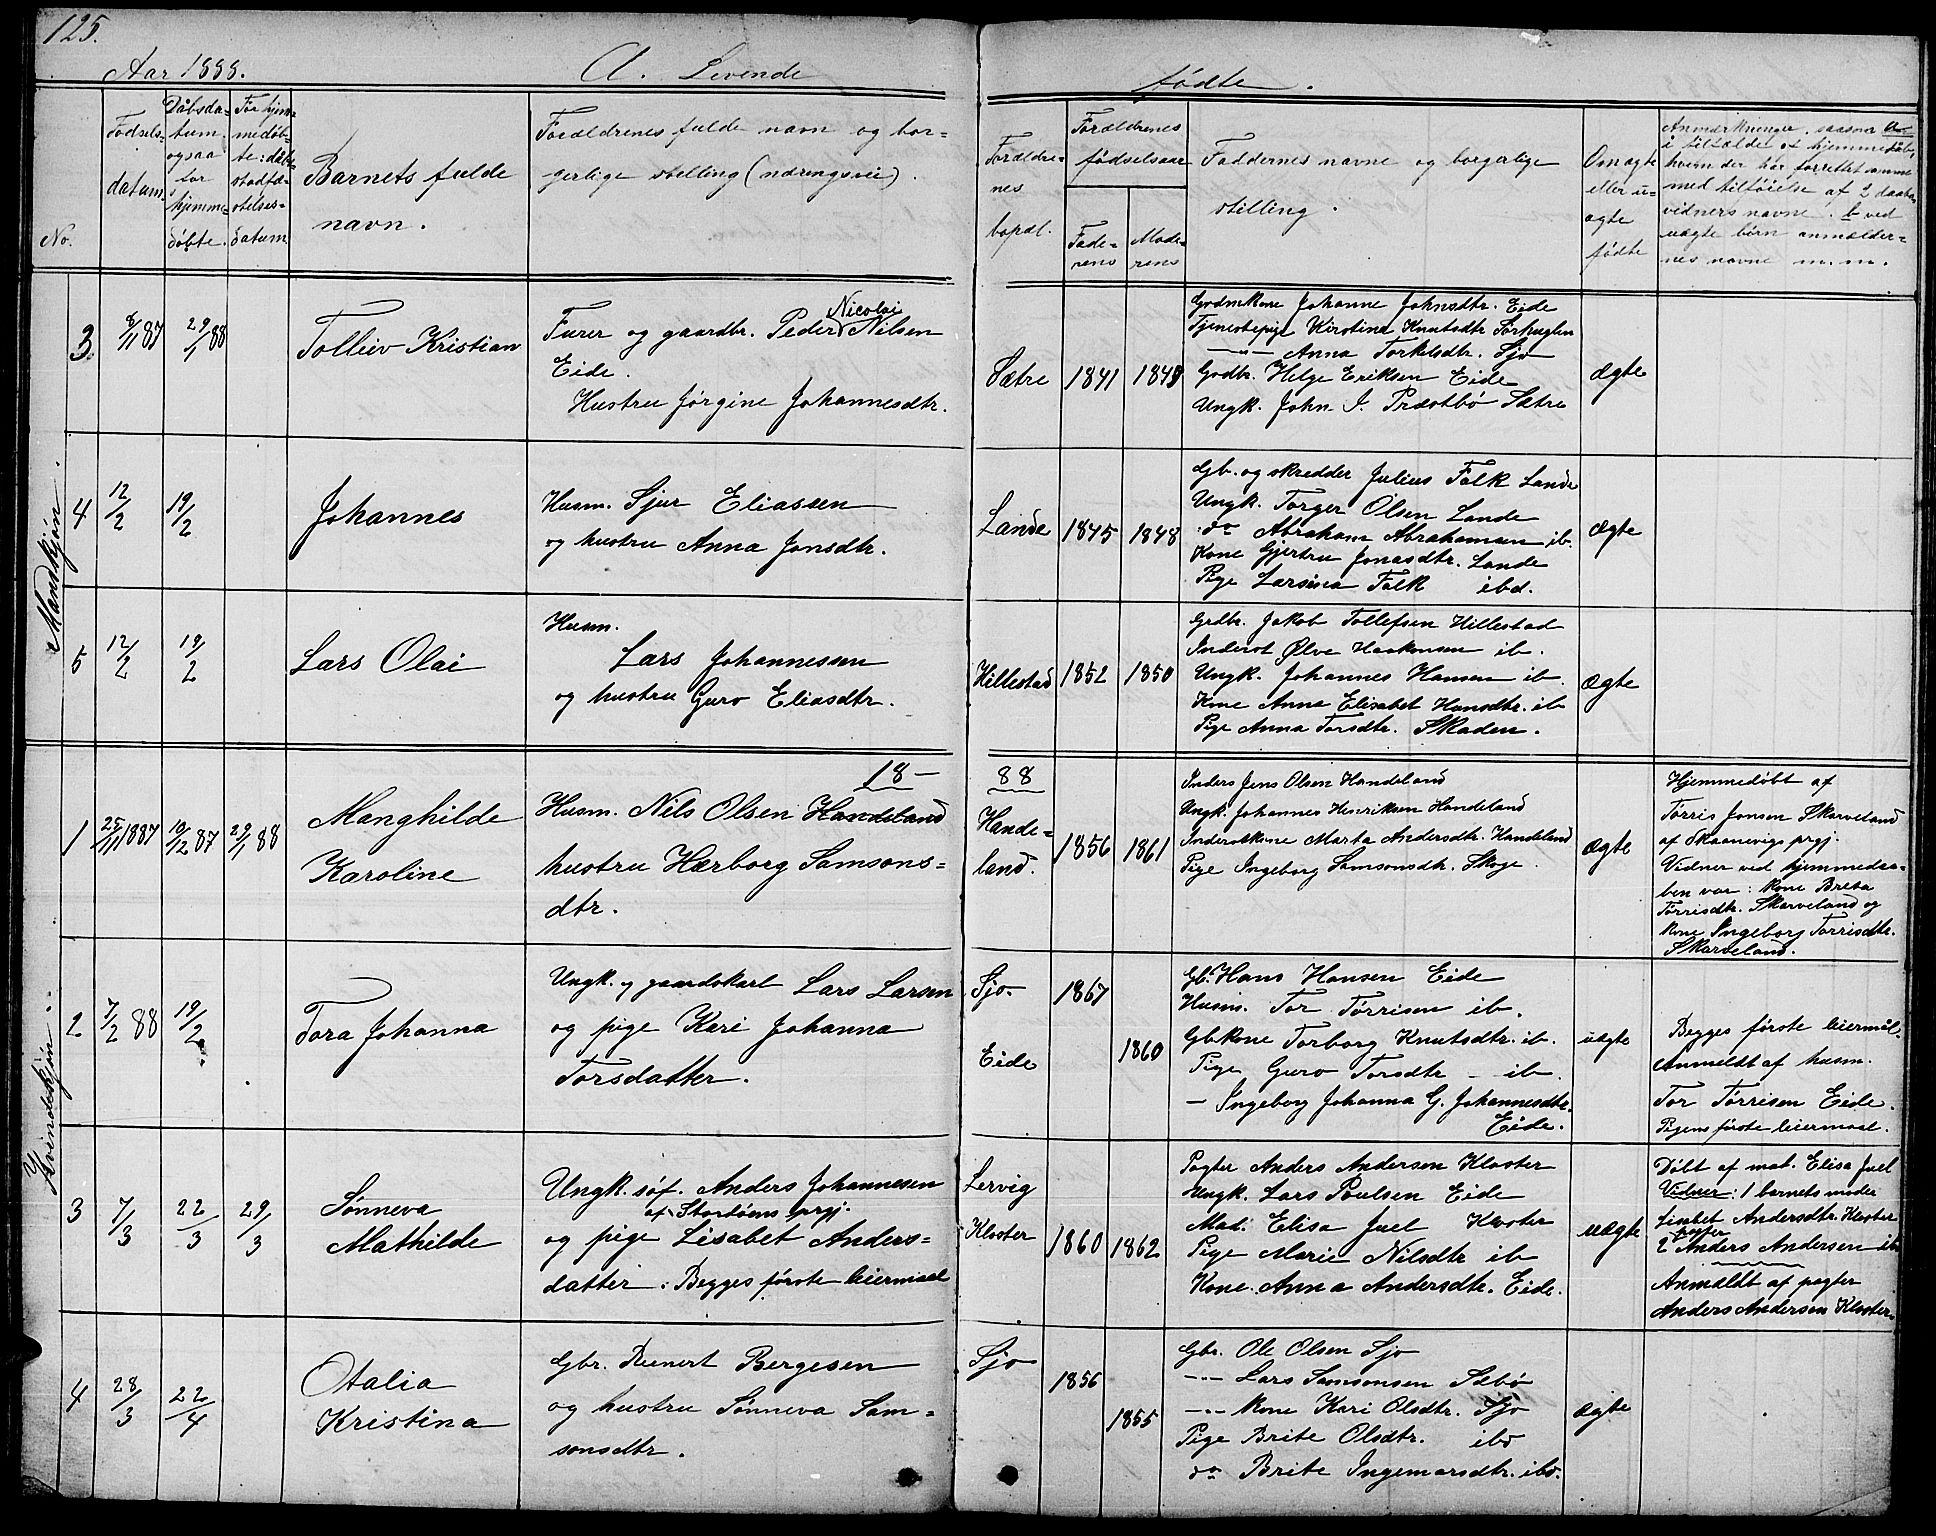 125.
Aar 1888.
A. Levende
fødte.
No.
Fødsels-
datum.
Dåbsda-
tum.
ogsaa
for
hjemme-
døbte.
For hjem-
medøb-
te: dåbs-
stadfæ-
stelses-
datum
Barnets fulde
navn.
Forældrenes fulde navn og bor-
gerlige stilling (næringsvei).
Forældre-
nes
bopæl.
Forældrenes
fødselsaar
Fade-
rens
Mode-
rens
Faddernes navne og borgerlige
stilling.
Om ægte
eller u-
ægte
fødte
Anmærkninger, saasom a
i tilfælde af hjemmedåb,
hvem der har forrettet samme
med tilføielse af 2 daabs-
vidners navne. b ved
uægte børn anmelder-
nes navne m.m.
Mandkjøn.
3.
8/11 87
29/1 88
Tolleiv Kristian
Nicolai
Furer og gaardbr. Peder Nilsen
Eide.
Hustru Jørgine Johannesdtr.
Sætre
1841
1849
Grdmkone Johanne Johnsdtr. Eide
Tjenestepige Kirstine Knutsdtr Sørhuglen
—„— Anna Torkelsdtr. Sjo
Grdbr. Helge Eriksen Eide
Ungk. John I. Præstbø Sætre
ægte
4
12/2
19/2
Johannes
Husm. Sjur Eliassen
og hustru Anna Jonsdtr.
Lande
1845
1848
Gb. og skredder Julius Falk Lande
Ungk. Torger Olsen Lande
do Abraham Abrahamsen ib.
Kone Gjertru Jonasdtr. Lande
Pige Larsina Falk ibd.
ægte
5
12/2
19/2
Lars Olai
Husm.
Lars Johannessen
og hustru Guro Eliasdtr.
Hillestad
1852
1850
Grdbr. Jakob Tollefsen Hillestad
Inderst Ølve Haakonsen ib.
Ungk. Johannes Hansen ib.
Kone Anna Elisabet Hansdtr. ib
Pige Anna Torsdtr. Skaden.
ægte
Kvindekjøn.
18—
88
1
25/11 1887
10/12 87
29/1 88
Manghilde
Karoline
Husm. Nils Olsen Handeland
hustru Hærborg Samsons-
dtr.
Hande-
land.
1856
1861
Inders Jens Olsen Handeland
Ungk. Johannes Henriksen Handeland
Inderstkone Marta Andersdtr. Handeland
Pige Ingeborg Samsonsdtr. Skoge
ægte
Hjemmedøbt af
Tørris Jonsen Skarveland
af Skaanevigs prgj.
Vidner ved hjemmedaa-
ben var: kone Breta
Tørrisdtr. Skarveland og
kone Ingeborg Tørrisdtr.
Skarveland.
2
7/2 88
19/2
Tora Johanna
Ungk. og gaardskarl Lars Larsen
og pige Kari Johanna
Torsdatter.
Sjo
Eide
1867
1860
Gb. Hans Hansen Eide
Husm. Tor Tørrisen ib.
Gb.kone Torborg Knutsdtr. ib.
Pige Guro Torsdtr — ib.
— Ingeborg Johanna G. Johannesdtr.
Eide.
uægte
Begges første leiermål
Anmeldt af husm.
Tor Tørrisen Eide.
Pigens første leiermaal.
3
7/3
22/3
29/3
Sønneva
Mathilde
Ungk. søf. Anders Johannesen
af Stordøens prgj.
og pige Lisabet Anders-
datter. Begges første leiermaal
Lervig
Kloster
1860
1862
Pagter Anders Andersen Kloster
Ungk. Lars Poulsen Eide
Mad. Elisa Juel Kloster
Pige Marie Nilsdtr ib
Kone Anna Andersdtr. Eide.
uægte
Døbt af mad. Elisa Juel
Vidner: 1 barnets moder
Lisabet Andersdtr. Kloster
pagter
2 Anders Andersen ib
Anmeldt af pagter
Anders Andersen Kloster.
4
28/3
22/4
Otalia
Kristina
Gbr. Reinert Bergesen
og hustru Sønneva Sam-
sonsdtr.
Sjo
1856
1855
Gbr. Ole Olsen Sjo
—„— Lars Samsonsen Sæbø
—„— kone Kari Olsdtr. Sjo
Pige Brite Olsdtr. ibd
do Brite Ingemarsdtr. ibd.
ægte